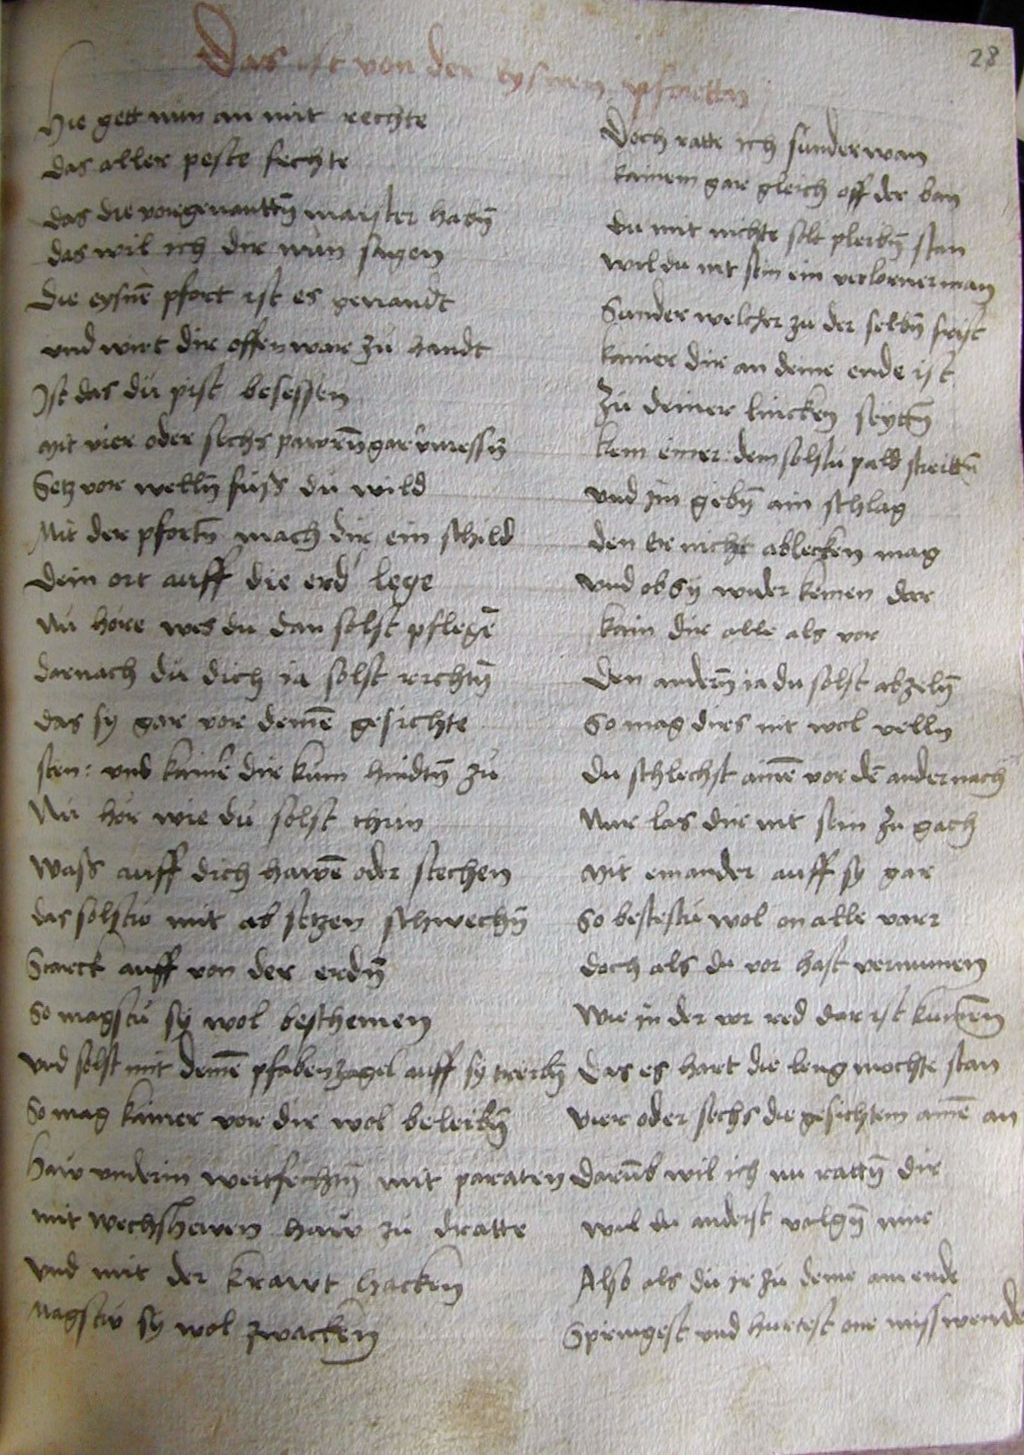 28
Das ist von der eysnen pfortten
Hie gett nün an mit rechte
das aller peste fechte
das die vorgenantten̄ maister habn̄
das wil ich dir nün sagen
Die eysnē pfort ist es genandt
vnd wirt dir offenwar zü handt
Ist das dü pist besessen
mit vier oder sechs pawrn̄ gar vmessn̄
Setz vor welln̄ fuss dü wild
Mit der pfortn̄ mach dir ein schild
dein ort auff die erd lege
Nü höre wes dü dan solst pflegē
darnach dü dich ia solst richtn̄
das sy gar vor deinē gesichte
sten: vnd kainē dir kum hindn̄ zü
Nü hör wie dü solst thün
wass auff dich hawē oder stechen
das solstu mit ab setzen schwechn̄
Starck auff von der erdn̄
So magstü sy wol beschemen
vnd solst mit deinē pfaben zagel auff sy treibn̄
So mag kainer vor dir wol beleibn̄
Haw vnderin weitfechtn̄ mit paraten
mit wechshewen haw zü dratte
vnd mit der krawt hacken
magstu sy wol zwacken
Doch ratte ich sunder wan
kainem gar gleich off der ban
du mit nichte solt pleibn̄ stan
wildu nit sein ein verlorner man
Sunder welcher zu der selbn̄ frist
kainer dir an deine ende ist
Zü deiner lincken seyttn̄
kem einer: dem solstu pald streittn̄
vnd jm gebn̄ ain schlag
den er nicht ablecken mag
vnd ob sy wider kemen dar
kain dir alle als vor
den andern̄ ia du solst abzeln̄
So mag dirs nit wol velln
du schlechst ainē vor dē ander nach
Nur las dir nit sein zu gach
mit einander auff sy gar
So bestestü wol on alle varr
doch als du vor hast vernumen
wie in der vor red dar ist kumen̄
Das es hart die leng mochte stan
vier oder sechs die gesichtem ainē an
darüb wil ich nu rattn̄ dir
wil du anderst volgn̄ mir
Also als dü je zü deine am ende
Springest vnd hurtest one misswende